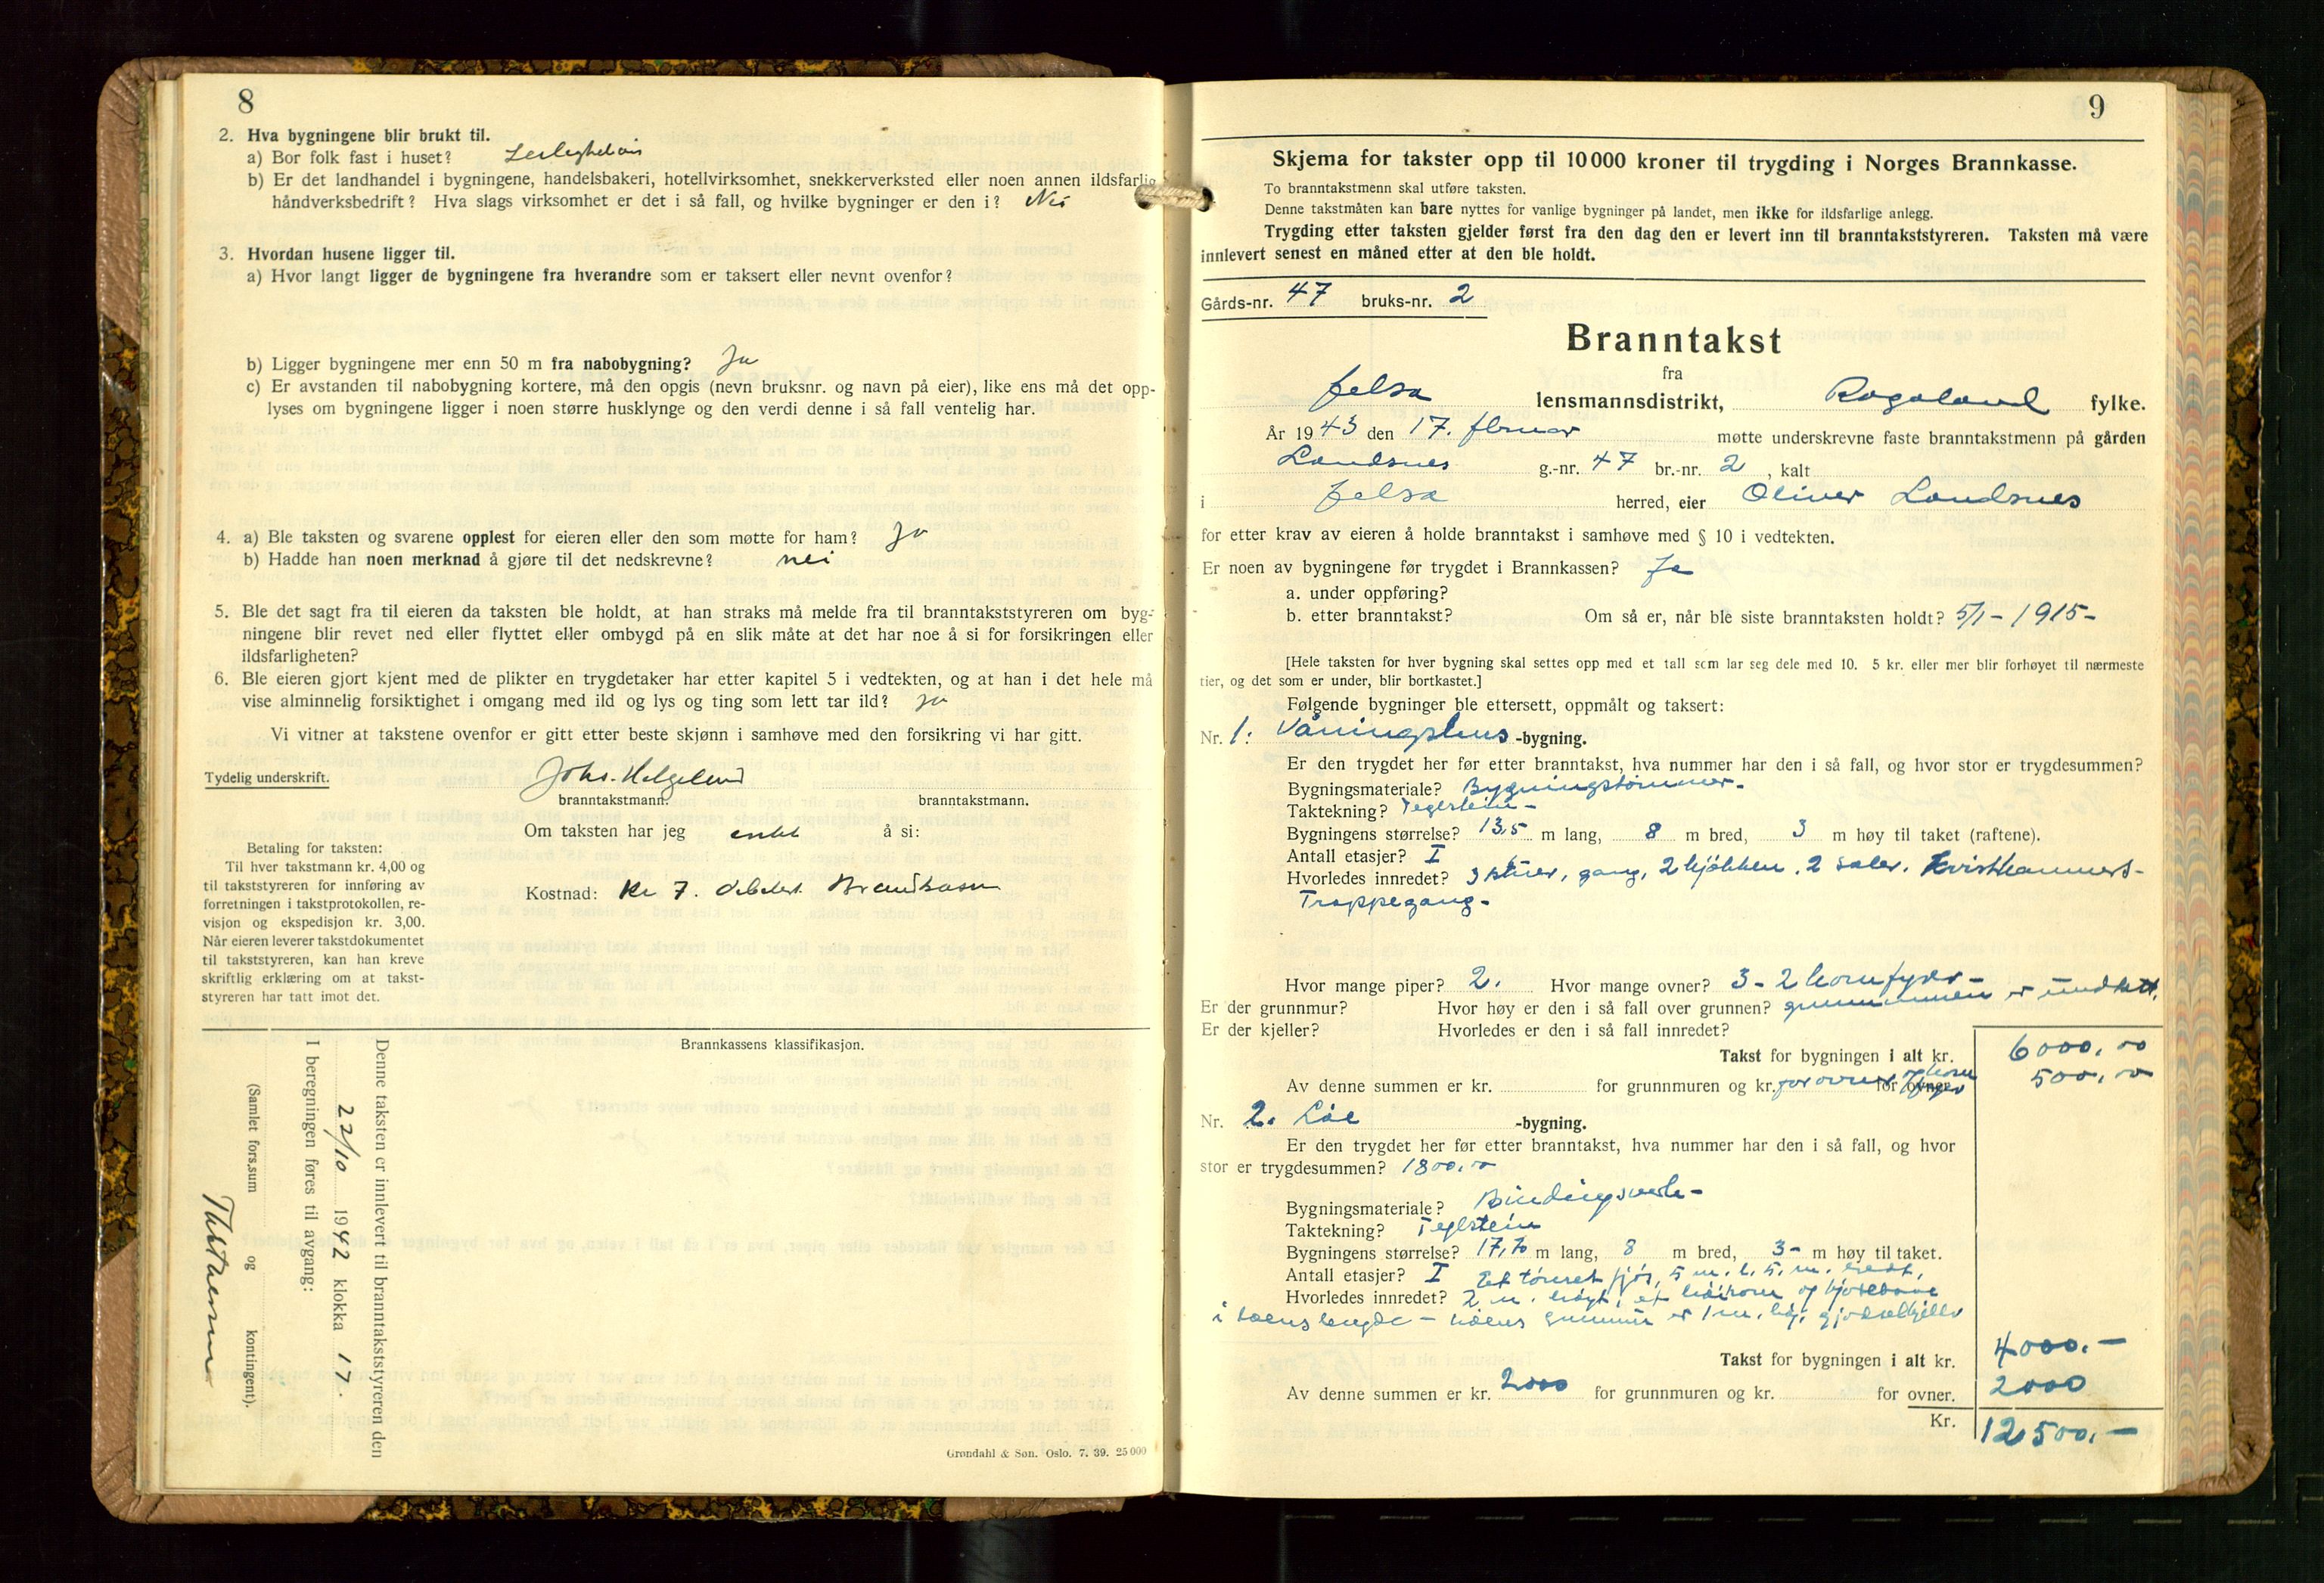 8
2. Hva bygningene blir brukt til.
a) Bor folk fast i huset?
b) Er det landhandel i bygningene, handelsbakeri, hotellvirksomhet, snekkerverksted eller noen annen ildsfarlig
håndverksbedrift? Hva slags virksomhet er det i så fall, og hvilke bygninger er den i? Nei
3. Hvordan husene ligger til.
a) Hvor langt ligger de bygningene fra hverandre som er taksert eller nevnt ovenfor?
b) Ligger bygningene mer enn 50 m fra nabobygning? Ja
c) Er avstanden til nabobygning kortere, må den opgis (nevn bruksnr. og navn på eier), like ens må det opp-
lyses om bygningene ligger i noen større husklynge og den verdi denne i så fall ventelig har.
4. a) Ble taksten og svarene opplest for eieren eller den som møtte for ham? Ja
b) Hadde han noen merknad å gjøre til det nedskrevne? nei
5. Ble det sagt fra til eieren da taksten ble holdt, at han straks må melde fra til branntakststyreren om byg-
ningene blir revet ned eller flyttet eller ombygd på en slik måte at det har noe å si for forsikringen eller
ildsfarligheten?
6. Ble eieren gjort kjent med de plikter en trygdetaker har etter kapitel 5 i vedtekten, og at han i det hele må
vise alminnelig forsiktighet i omgang med ild og lys og ting som lett tar ild? ja
Vi vitner at takstene ovenfor er gitt etter beste skjønn i samhøve med den forsikring vi har gitt.
Tydelig underskrift. Johs. Helgeland
branntakstmann. branntakstmann.
Om taksten har jeg intet å si:
Betaling for taksten:
Til hver takstmann kr. 4,00 og
til takststyreren for innføring av
forretningen i takstprotokollen, re-
visjon og ekspedisjon kr. 3,00.
Når eieren leverer takstdokumentet
til takststyreren, kan han kreve
skriftlig erklæring om at takst-
styreren har tatt imot det.
Kostnad: Kr 7. debitert Brandkassen
Brannkassens klassifikasjon.
Denne taksten er innlevert til branntakststyreren den
22/10 1942 klokka 17.
I beregningen føres til avgang:
(Samlet fors.sum og kontingent).
Grøndahl & Søn. Oslo. 7. 39. 25 000
9
Skjema for takster opp til 10 000 kroner til trygding i Norges Brannkasse.
To branntakstmenn skal utføre taksten.
Denne takstmåten kan bare nyttes for vanlige bygninger på landet, men ikke for ildsfarlige anlegg.
Trygding etter taksten gjelder først fra den dag den er levert inn til branntakststyreren. Taksten må være
innlevert senest en måned etter at den ble holdt.
Gårds-nr. 47 bruks-nr. 2
Branntakst
fra
Jelsa lensmannsdistrikt, Rogaland fylke.
År 1943 den 17. februar møtte underskrevne faste branntakstmenn på gården
Landsnes g.-nr. 47 br.-nr. 2, kalt
i Jelsa herred, eier Oliver Landsnes
for etter krav av eieren å holde branntakst i samhøve med § 10 i vedtekten.
Er noen av bygningene før trygdet i Brannkassen? Ja
a. under oppføring?
b. etter branntakst? Om så er, når ble siste branntaksten holdt? 5/1 – 1915 –
[Hele taksten for hver bygning skal settes opp med et tall som lar seg dele med 10. 5 kr. eller mer blir forhøyet til nærmeste
tier, og det som er under, blir bortkastet.]
Følgende bygninger ble ettersett, oppmålt og taksert:
Nr. 1. Våningshus -bygning.
Er den trygdet her før etter branntakst, hva nummer har den i så fall, og hvor stor er trygdesummen?
Bygningsmateriale? Bygningstømmer –
Taktekning? Teglstein –
Bygningens størrelse? 13,5 m lang, 8 m bred, 3 m høy til taket (raftene).
Antall etasjer? I
Hvorledes innredet? 3 stuer, gang, 2 kjøkken, 2 saler, Kvistkammers –
Trappegang –
Hvor mange piper? 2. Hvor mange ovner? 3 – 2 komfyrer –
Er der grunnmur? Hvor høy er den i så fall over grunnen? grunnmuren er undtatt.
Er der kjeller? Hvorledes er den i så fall innredet?
Takst for bygningen i alt kr. 6000,00
Av denne summen er kr. for grunnmuren og kr. for ovner og komfyrer for ovner. 500,00
Nr. 2. Løe -bygning.
Er den trygdet her før etter branntakst, hva nummer har den i så fall, og hvor
stor er trygdesummen? 1800,00
Bygningsmateriale? Bindingsverk –
Taktekning? Teglstein
Bygningens størrelse? 17,70 m lang, 8 m bred, 3 – m høy til taket.
Antall etasjer? I Et tømret fjøs, 5 m. l. 5. m. bredt,
Hvorledes innredet? 2 m. høgt, et høirom og kjørebane
i løens lengde – Løens grunnmur er 1 m. høg, gjødselkjeller
Takst for bygningen i alt kr. 4000. –
Av denne summen er kr. 2000 for grunnmuren og kr. for ovner. 2000
Kr. 12500. –